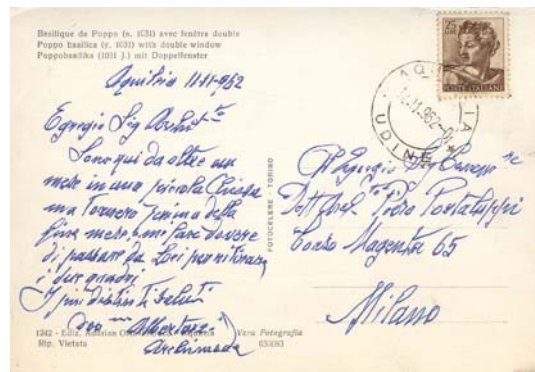 Basilique de Poppo (s. 1031) avec fenêtre double
Poppo basilica (y. 1031) with double window
Poppobasilika (1031 J.) mit Doppelfenster
Aquileia 11-11-962
Egregio Sig Archit to
Sono qui da oltre un
mese in una piccola Chiesa
ma tornerò prima della
fine mese e mi farò dovere
di passare da Lei per ritirare
i due quadri
I più distinti saluti
Albertazzi
Archimede
1242 - Ediz. Aquileia
Rip. Vietata
Vera Fotografia
FOTOCELERE - TORINO
25
POSTE ITALIANE
AQUILEIA
11.962
UDINE
All Egregio Sig
Dott Arch. Piero Portaluppi
Corso Magenta 65
Milano